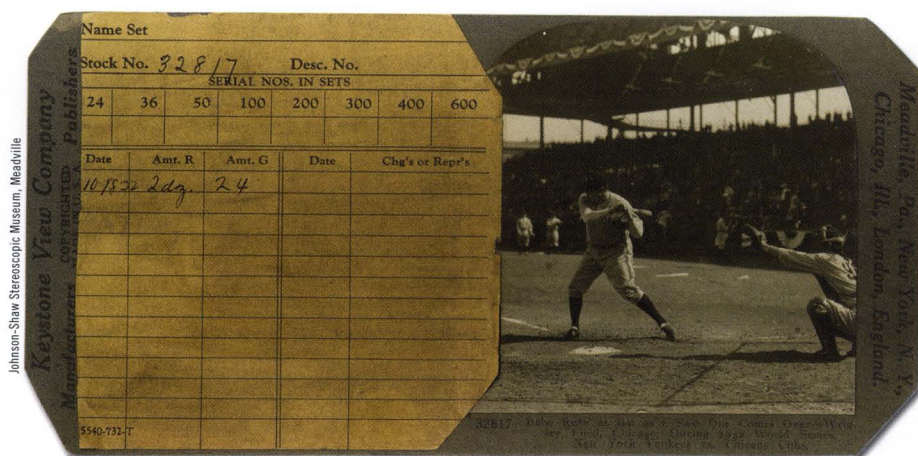 Johnson-Shaw Stereoscopic Museum, Meadville
Keystone View Company
Manufacturers Publishers
COPYRIGHTED
Name Set
Stock No. 32817 Desc. No.
SERIAL NOS. IN SETS
24 36 50 100 200 300 400 600
Date Amt. R Amt. G Date Chg's or Repr's
2dz. 24
5540-732-T
Meadville, Pa., New York, N. Y.,
Chicago, Ill., London, England.
32817 Babe Ruth at Bat as a Fast One Comes Over—Wrig-
ley Field, Chicago, During 1932 World Series,
New York Yankees vs. Chicago Cubs.